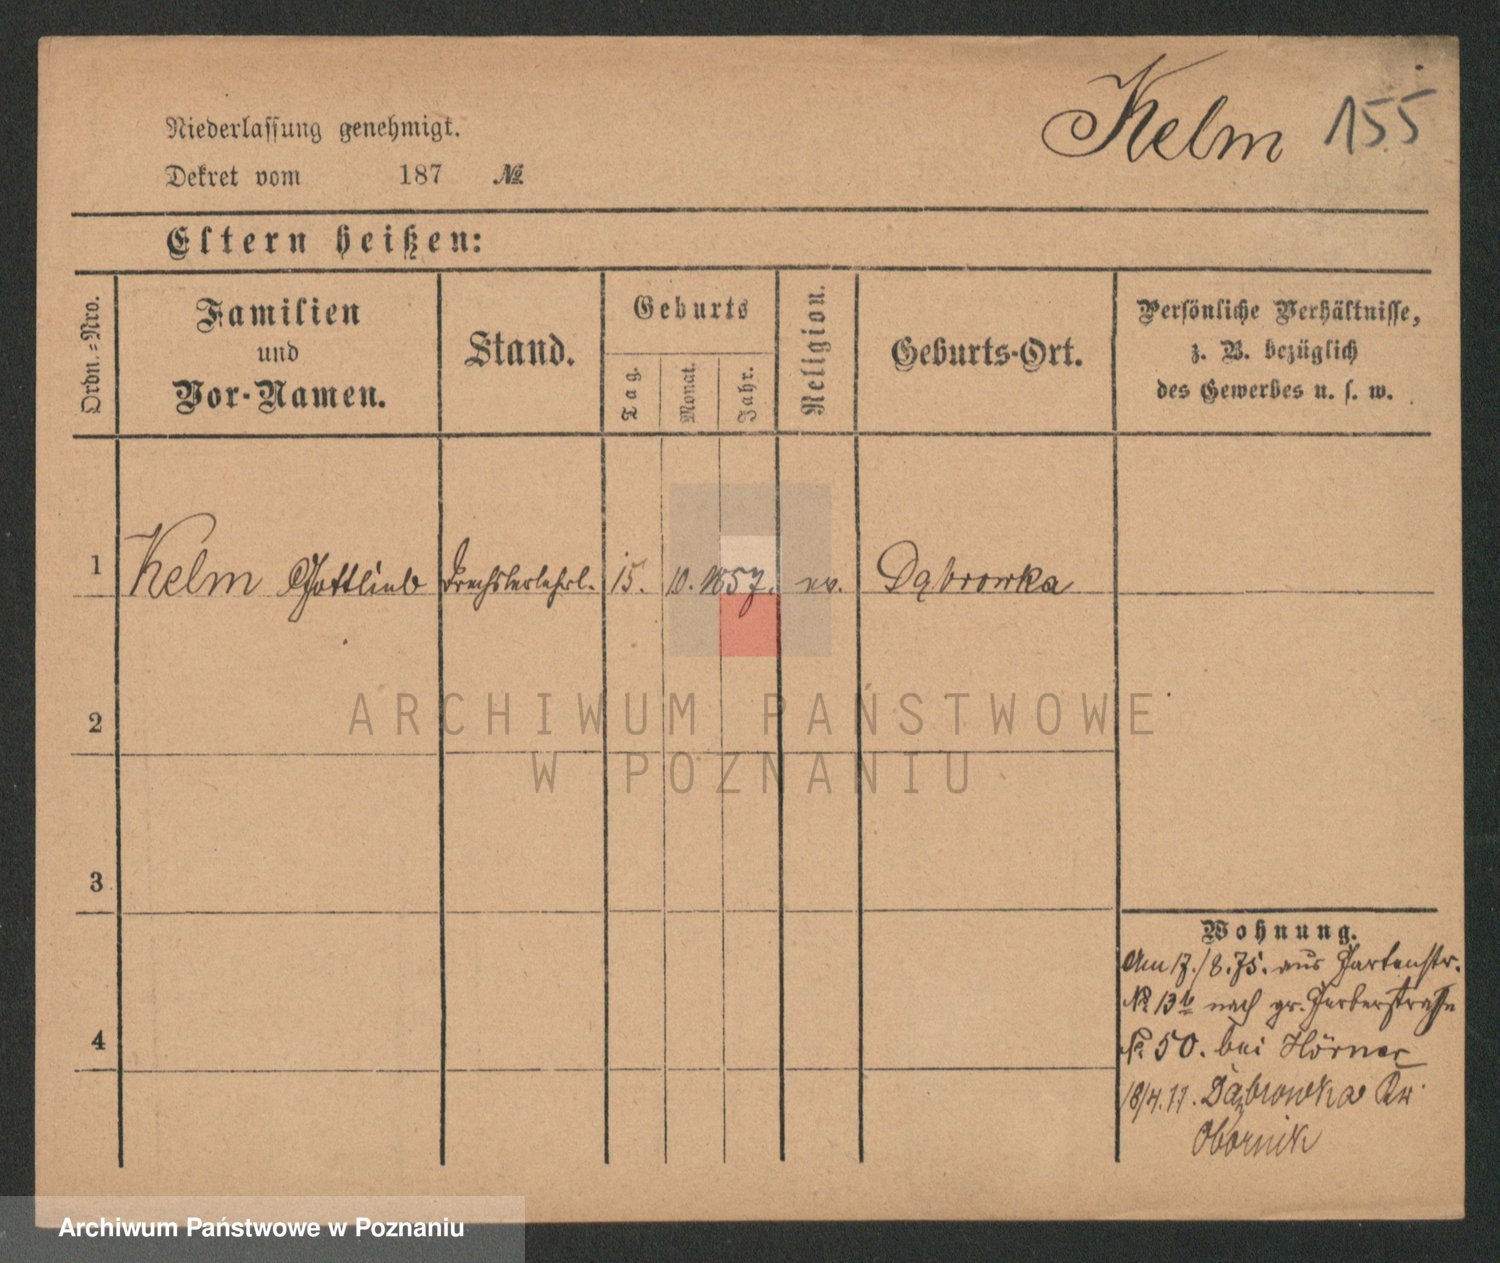 Kelm 155
Niederlassung genehmigt.
Dekret vom 187 №
Eltern heißen:
Ordn.=Nro.
Familien
und
Vor-Namen.
Stand.
Geburts
Tag.
Monat.
Jahr.
Religion.
Geburts-Ort.
Persönliche Verhältnisse,
z. B. bezüglich
des Gewerbes u. s. w.
1 Kelm Gottlieb Drechslerlehrl. 15. 10. 1857. ev. Dąbrowka
2
ARCHIWUM PAŃSTWOWE
W POZNANIU
3
Wohnung.
Am 17./8.75. aus Gartenstr.
№ 13b nach gr. Gerberstraße
№ 50. bei Hörner
4
18/4.77. Dąbrowka Kr.
Obornik
Archiwum Państwowe w Poznaniu